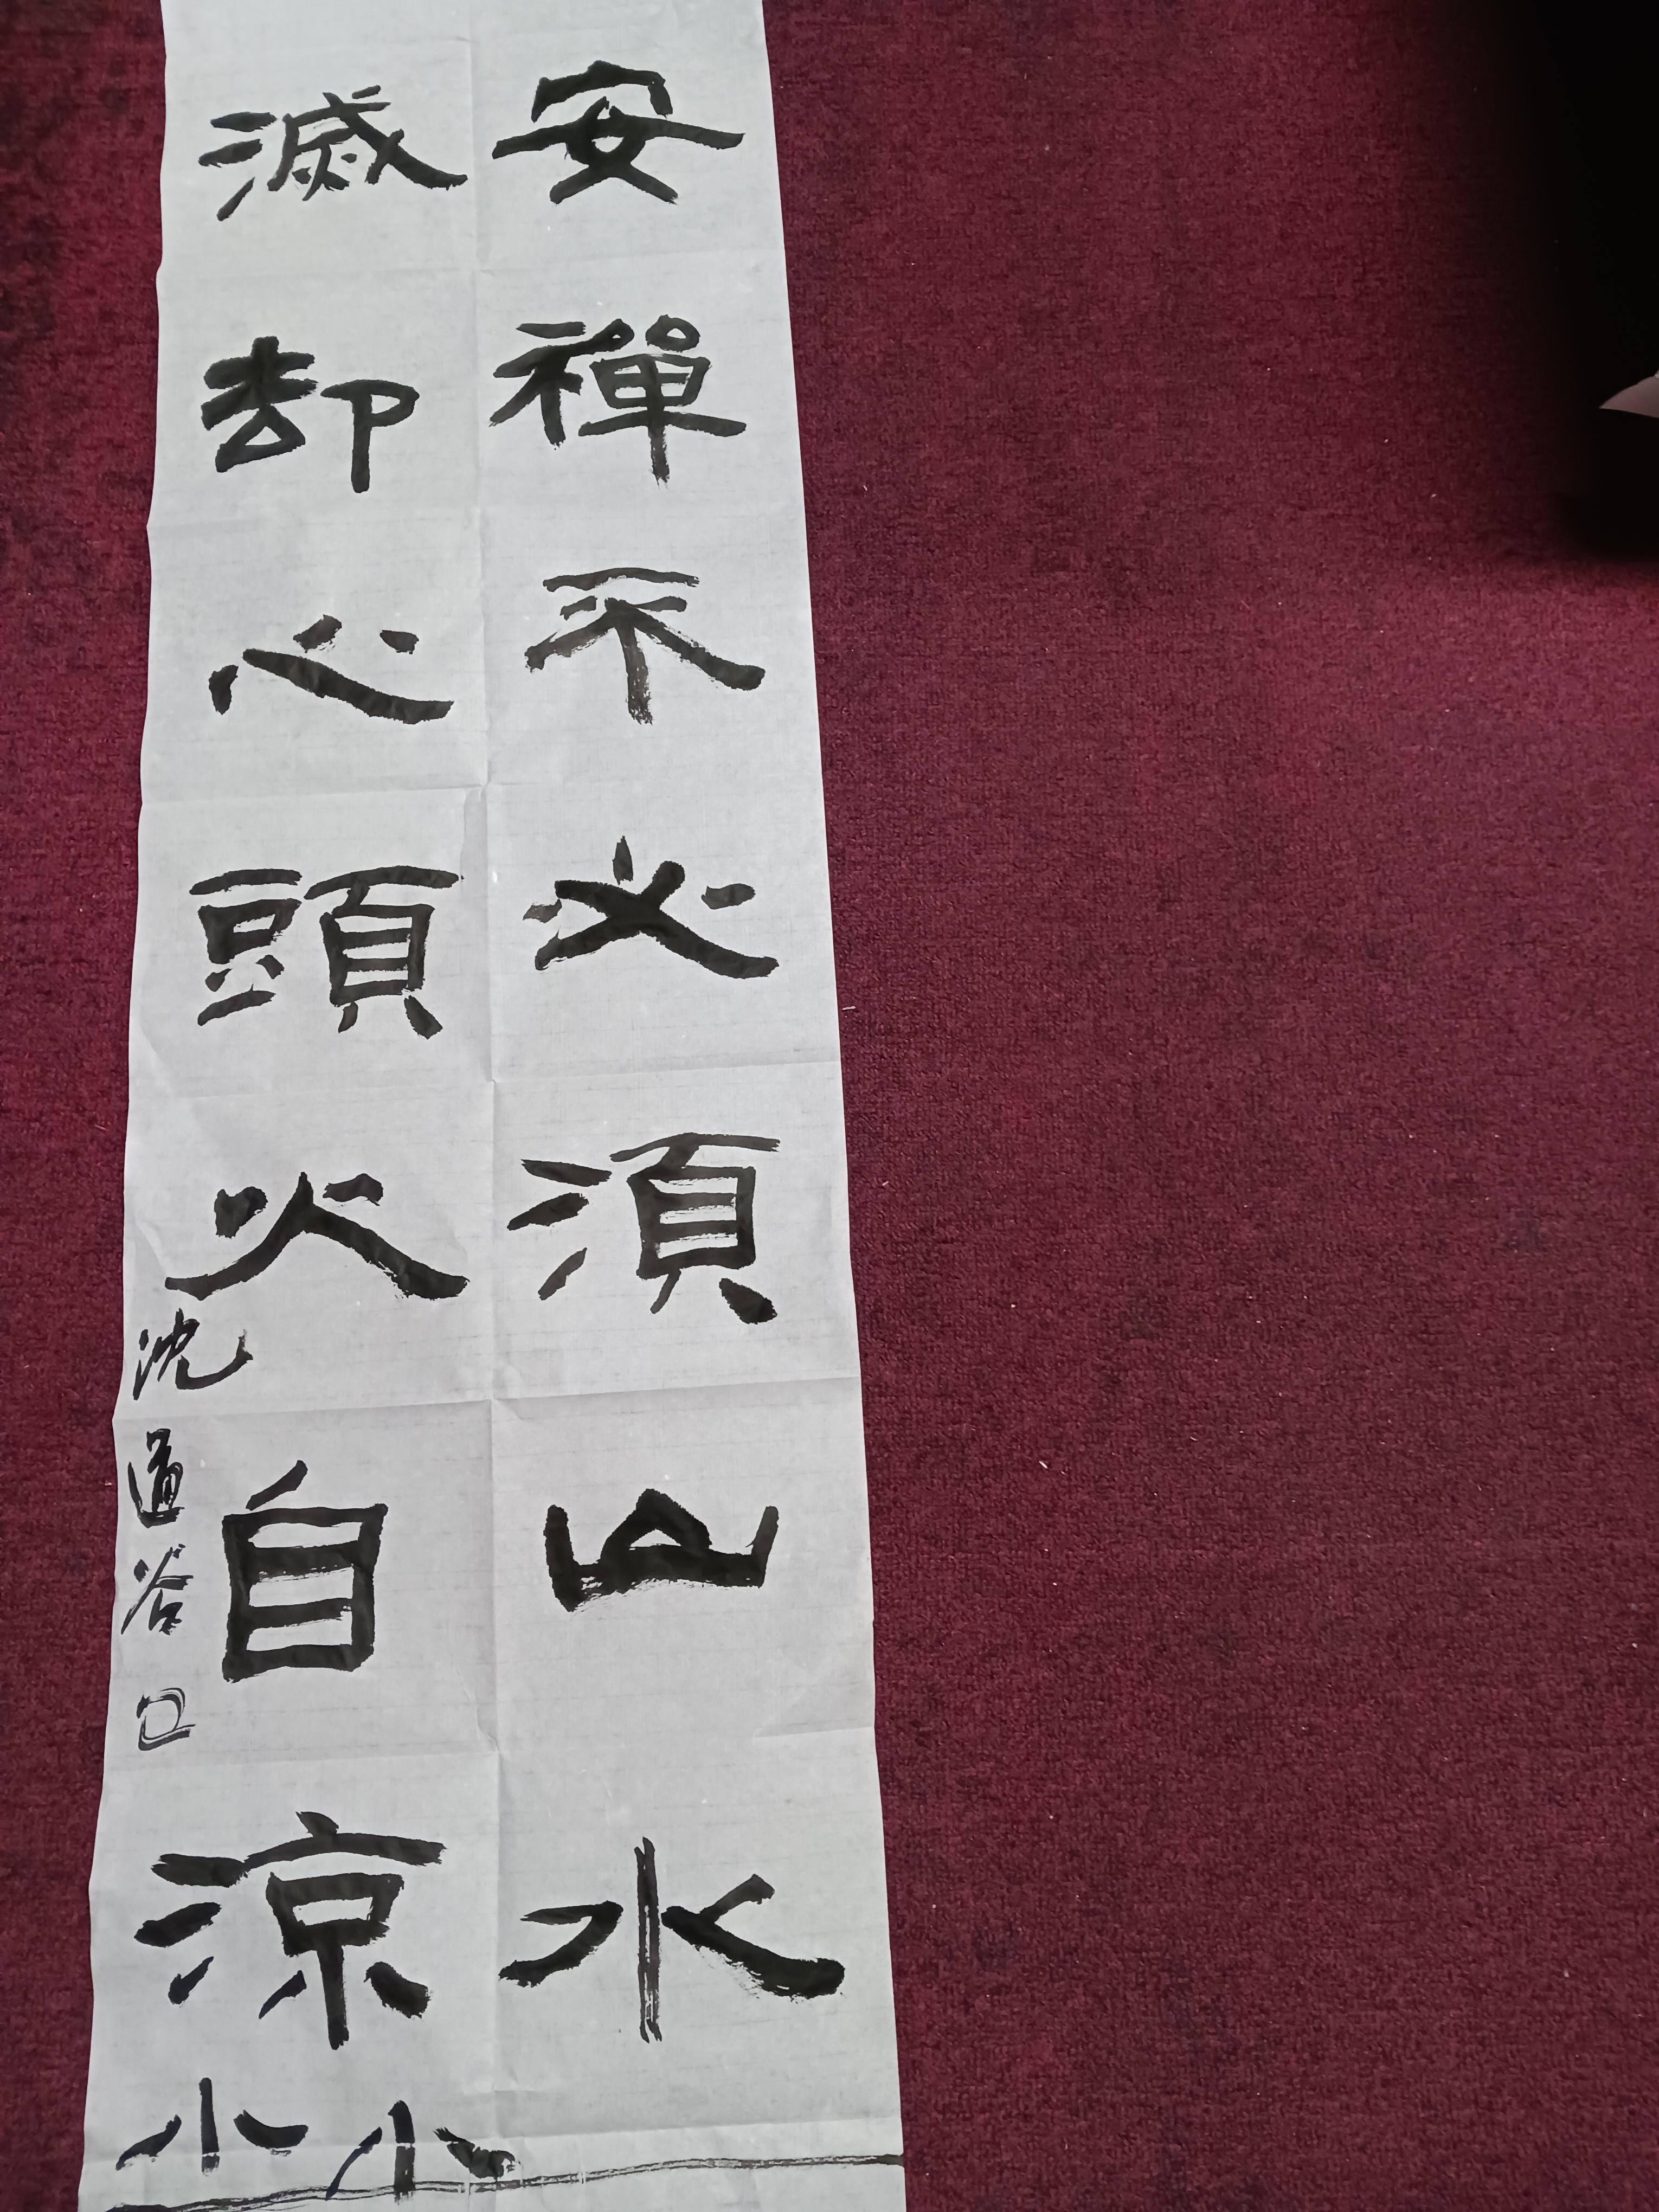 安禪不必須山水
滅却心頭火自涼
沈道谷
小小